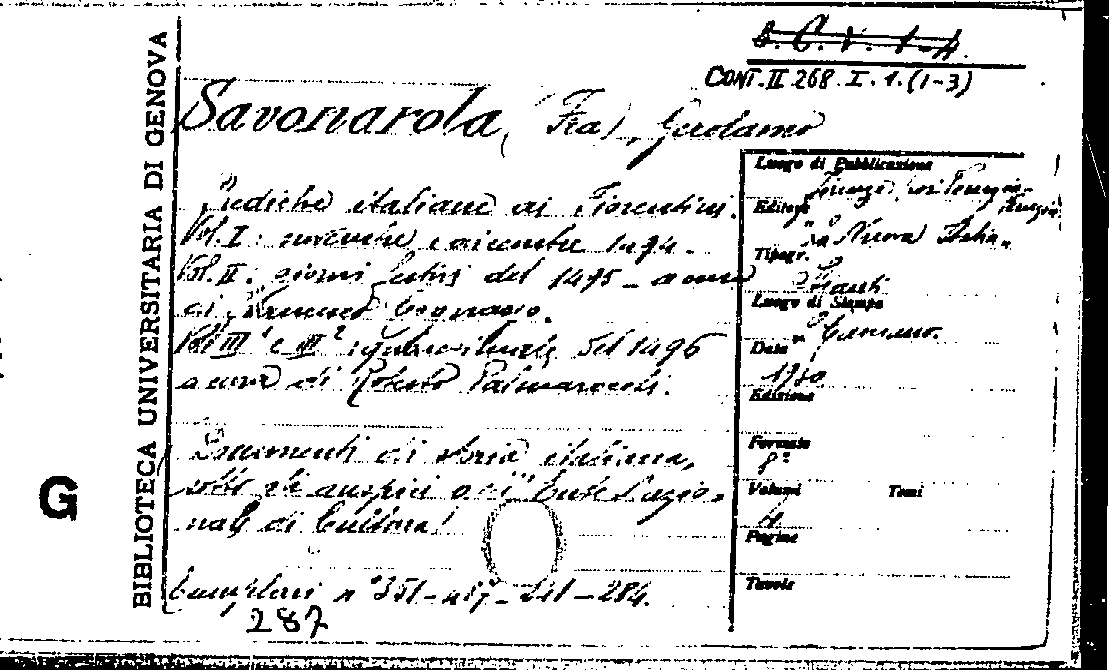 B.C.V. 1-4.
CONT. II 268. I. 1. (1-3)
BIBLIOTECA UNIVERSITARIA DI GENOVA
Savonarola, (Fra), Girolamo
Prediche italiane ai Fiorentini.
Vol. I: novembre e dicembre 1494.
Vol. II: giorni festivi del 1495 - a cura
di Francesco Cognasso.
Vol. III¹ e III²: quaresimale del 1496
a cura di Roberto Palmarocchi.
Documenti di storia italiana,
sotto gli auspici dell'Ente Nazio-
nale di Cultura.
Esemplari n° 351 - 417 - 241 - 284.
287
G
Luogo di Pubblicazione
Firenze, Perugia-
Editore Venezia
"La Nuova Italia"
Tipogr.
Luogo di Stampa
Data
1930
Edizione
Formato
8°
Volumi Tomi
4
Pagine
Tavole